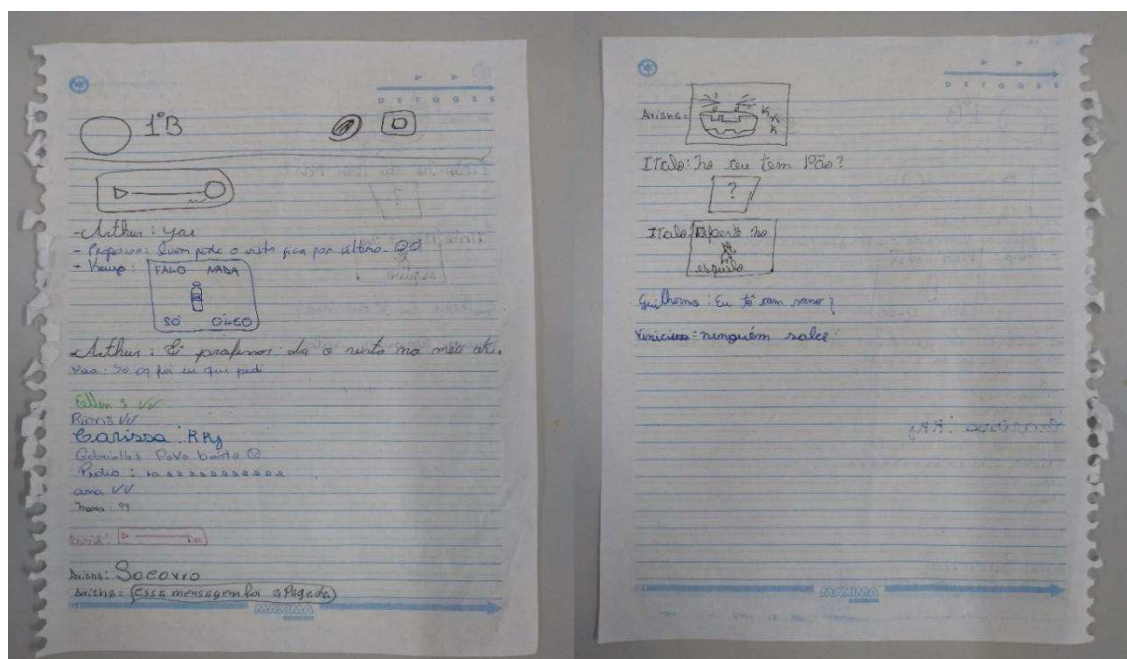 D S T Q Q S S
1ºB
- Arthur: yae
- Professor: Quem pede o visto fica por último
- Kauã:
FALO NADA
SÓ ÓLEO
- Arthur: Ei professor da o visto no meu ai.
só foi eu que pedi
Ellen: VV
VV
Larissa: RRs
Povo besta
Pedro: kaaaaaaaaaaa
ana VV
Maria: ??
Arisha: Socorro
Arisha: essa mensagem foi apagada
MÁXIMA
D S T Q Q S S
Arisha:
K
K
K
Italo: No céu tem Pão?
?
Italo: Esperto no
esquilo
Guilherme: Eu tô com sono
Vinicius: ninguém sabe
MÁXIMA